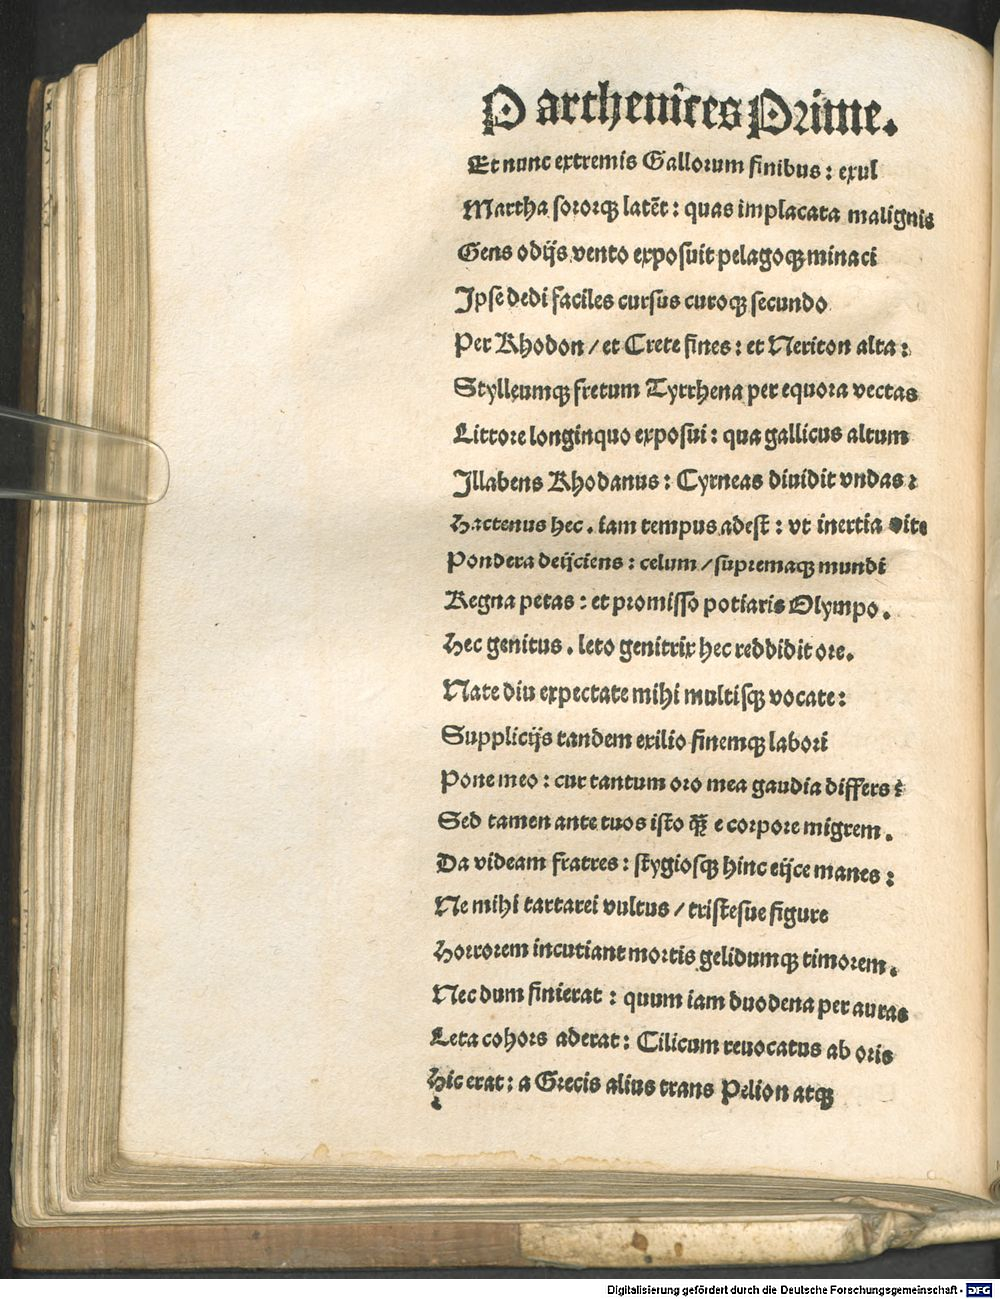 Parthenices Prime.
Et nunc extremis Gallorum finibus: exul
Martha sororqꝫ latēt: quas implacata malignis
Gens odijs vento exposuit pelagoqꝫ minaci
Ipse dedi faciles cursus curoqꝫ secundo
Per Rhodon / et Crete fines: et Neriton alta:
Stylleumqꝫ fretum Tyrrhena per equora vectas
Littore longinquo exposui: qua gallicus altum
Illabens Rhodanus: Cyrneas diuidit vndas:
Hactenus hec. iam tempus adest: vt inertia vite
Pondera deijciens: celum / supremaqꝫ mundi
Regna petas: et promisso potiaris Olympo.
Hec genitus. leto genitrix hec reddidit ore.
Nate diu expectate mihi multisqꝫ vocate:
Supplicijs tandem exilio finemqꝫ labori
Pone meo: cur tantum oro mea gaudia differs:
Sed tamen ante tuos isto qꝫ̄ e corpore migrem.
Da videam fratres: stygiosqꝫ hinc eijce manes:
Ne mihi tartarei vultus / tristesue figure
Horrorem incutiant mortis gelidumqꝫ timorem.
Nec dum finierat: quum iam duodena per auras
Leta cohors aderat: Cilicum reuocatus ab oris
Hic erat: a Grecis alius trans Pelion atqꝫ
Digitalisierung gefördert durch die Deutsche Forschungsgemeinschaft - DFG